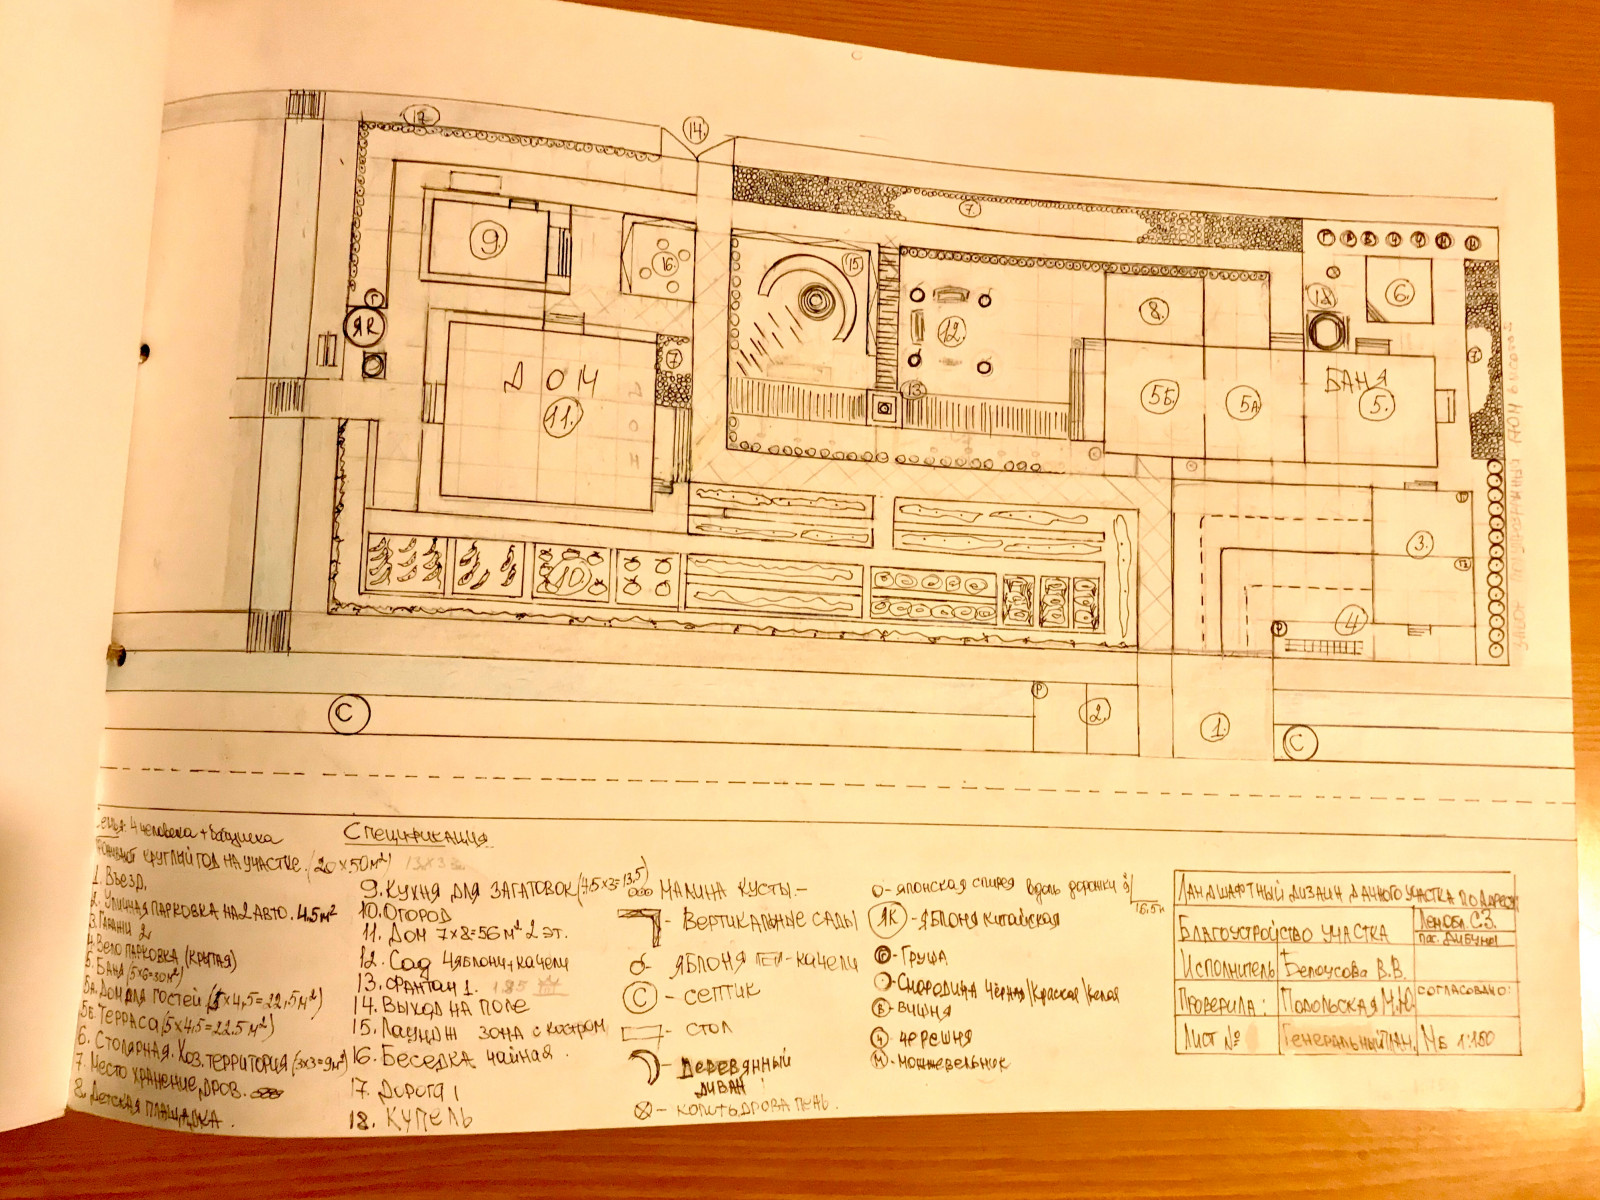 17
14.
7.
9
16
15
Г В В Ч Ч М М
6.
18
Г
ЯК
7
12.
8.
7
ДОМ
11.
ДОМ
13
5Б
5А
БАНЯ
5.
10
3.
4
Р
С
Р
2.
1.
С
4 человека + бабушка
круглый год на участке. (20 х 50 м²)
1. Въезд.
2. Уличная парковка на 2 авто. 4.5 м²
3. Гаражи 2
4. Вело парковка (крытая)
5. Баня (5х6=30м²)
5а. Дом для гостей (5х4,5=22,5м²)
5Б. Терраса (5х4,5=22.5м²)
6. Столярная. Хоз. территория (3х3=9м²)
7. Место хранение дров.
8. Детская площадка.
Спецификация
9. Кухня для заготовок (4.5х3=13,5)
10. Огород
11. Дом 7х8=56 м² 2 эт.
12. Сад 4 яблони + качели
13. Фонтан 1.
14. Выход на поле
15. Лаундж зона с костром
16. Беседка чайная.
17. Дорога
18. Купель
Малина кусты.-
- Вертикальные сады
- яблоня
-качели
С - септик
- стол
- Деревянный
диван
- колить дрова пень.
- японская спирея вдоль дорожки
16.5м
ЯК - яблоня китайская
Г - Груша
- Смородина чёрная/красная/белая
В - вишня
Ч черешня
М - можжевельник
Ландшафтный дизайн дачного участка по адресу
Благоустройство участка
Лен. обл. С.З.
пос. Дибуны
Исполнитель Белоусова В.В.
Проверила: Подольская М.Ю.
согласовано:
Лист №
Генеральный план.
МБ 1:150